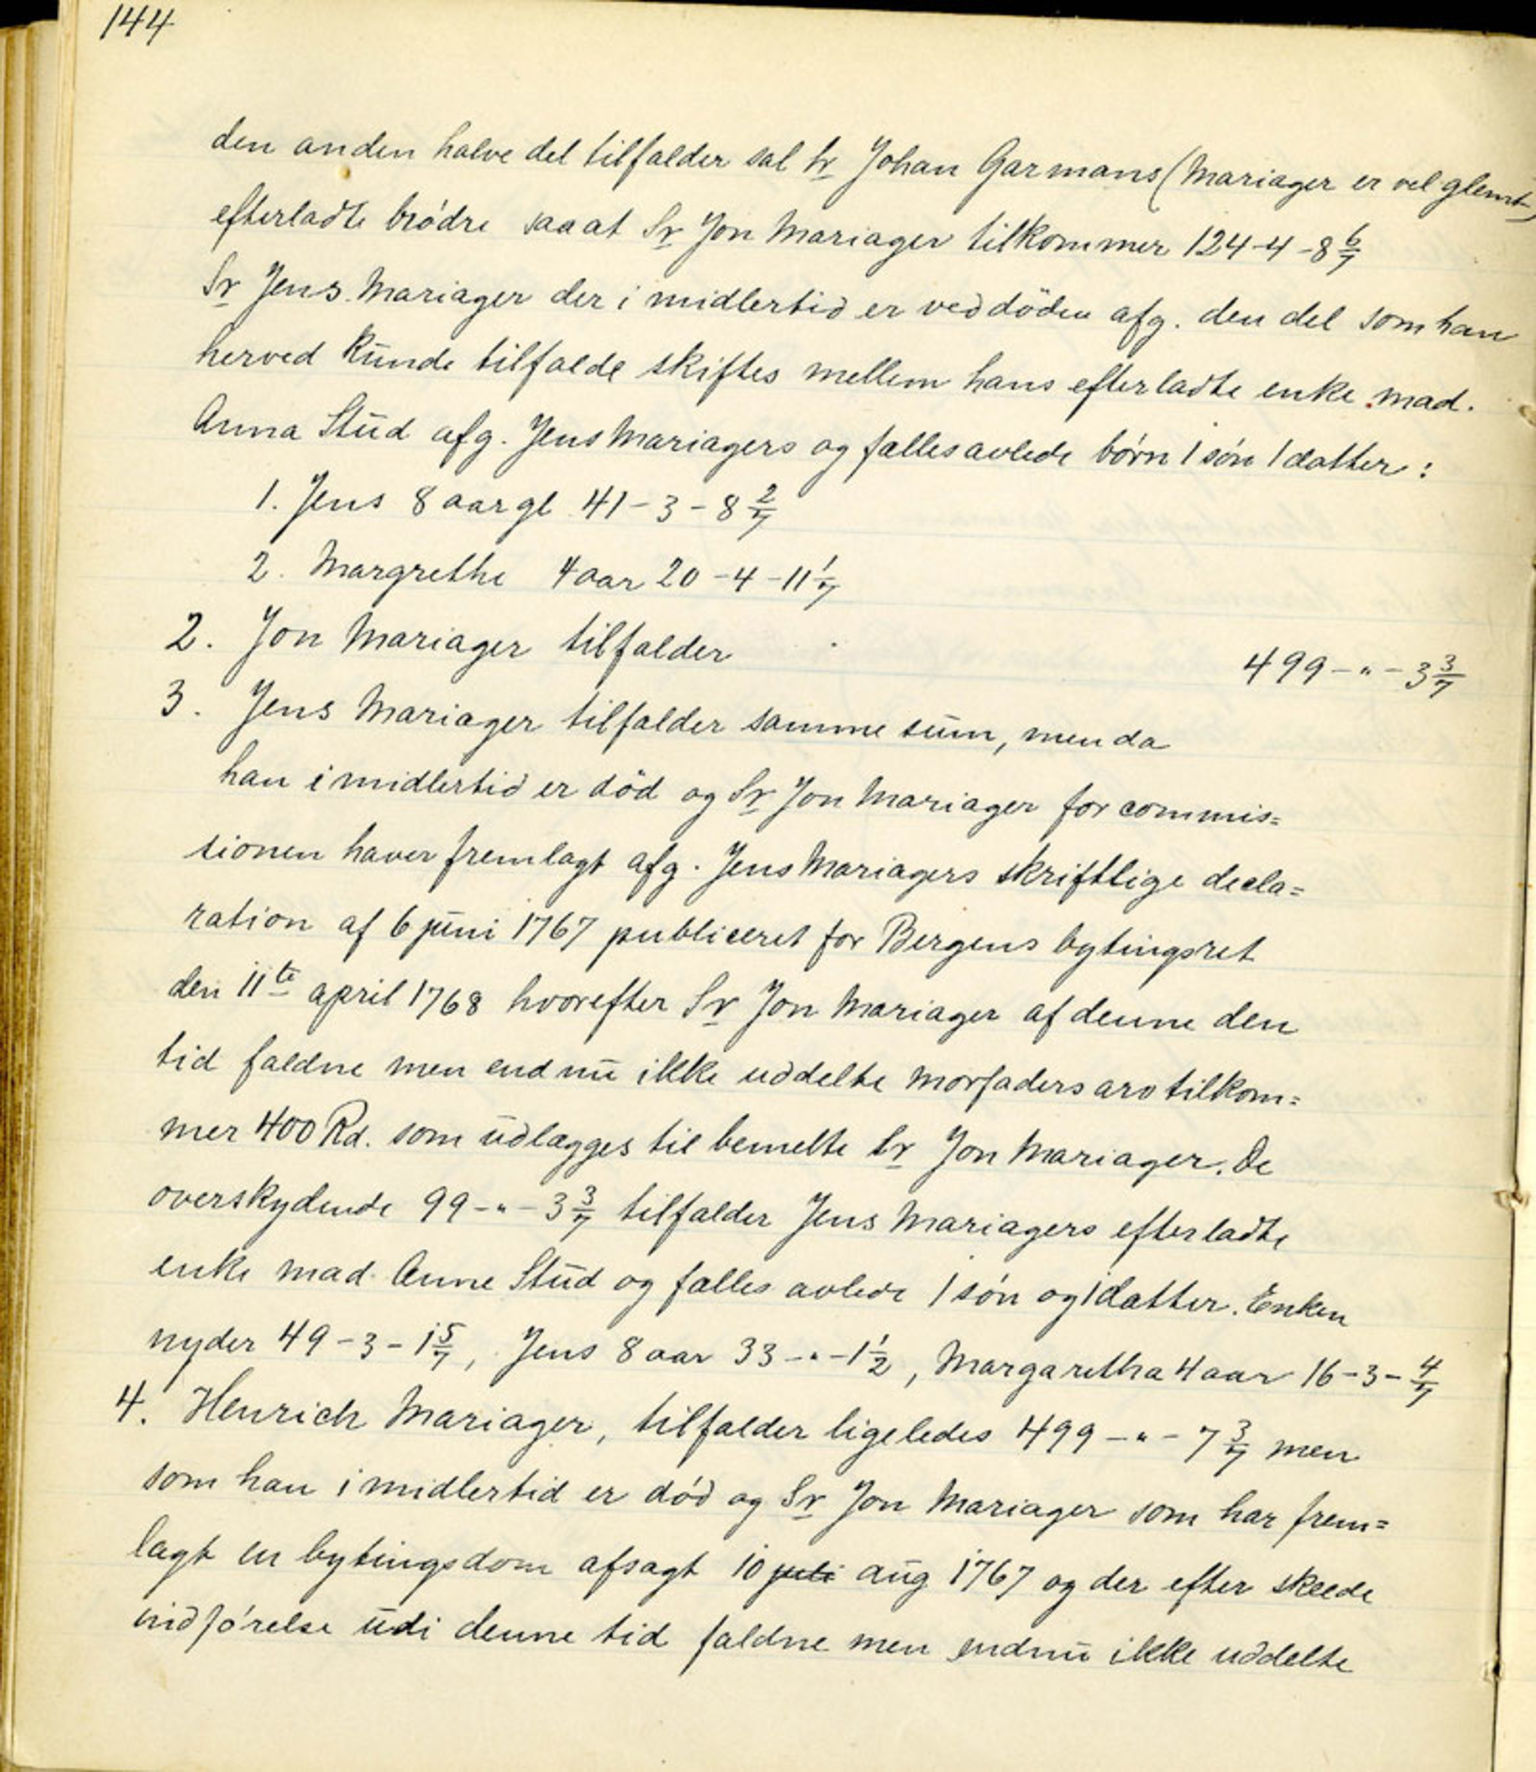 144
den anden halve del tilfalder sal hr Johan Garmans (Mariager er vel glemt)
efterladte brödre saa at Sr Jon Mariager tilkommer 124-4-8 6/7
Sr Jens Mariager der imidlertid er ved döden afg. den del som han
herved kunde tilfalde skiftes mellem hans efterladte enke mad.
Anna Stud afg. Jens Mariagers og fællesavlede börn 1 sön 1 datter:
1. Jens 8 aar gl 41-3-8 2/7
2. Margrethe 4 aar 20-4-11 1/7
2. Jon Mariager tilfalder 499-"-3 3/7
3. Jens Mariager tilfalder samme sum, men da
han imidlertid er död og Sr Jon Mariager for commis=
sionen haver fremlagt afg. Jens Mariagers skriftlige decla=
ration af 6 juni 1767 publiceret for Bergens bytingsret
den 11te april 1768 hvorefter Sr Jon Mariager af denne den
tid faldne men endnu ikke uddelte morfaders arv tilkom=
mer 400 Rd. som udlægges til bemelte Sr Jon Mariager. De
overskydende 99-"-3 3/7 tilfalder Jens Mariagers efterladte
enke mad. Anne Stud og fælles avlede 1 sön og 1 datter. Enken
nyder 49-3-1 5/7, Jens 8 aar 33-"-1 1/2, Margaretha 4 aar 16-3-4/7
4. Henrich Mariager, tilfalder ligeledes 499-"-7 3/7 men
som han imidlertid er död og Sr Jon Mariager som har frem=
lagt en bytingsdom afsagt 10 juli aug 1767 og der efter skeede
indförelse udi denne tid faldne men endnu ikke uddelte